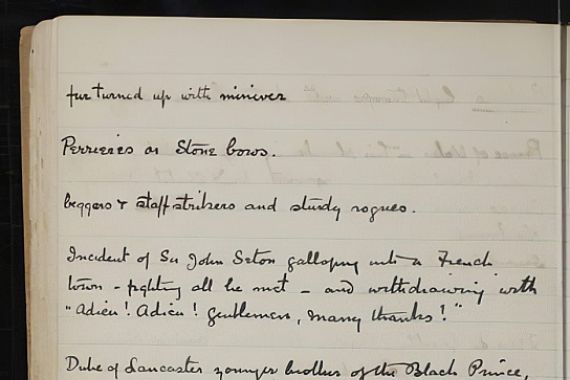 fur turned up with miniver
Perrieres or Stone bows.
beggars & staffstrikers and sturdy rogues.
Incident of Sir John Seton galloping into a French
town - fighting all he met - and withdrawing with
"Adieu! Adieu! gentlemen, many thanks!"
Duke of Lancaster younger brother of the Black Prince,